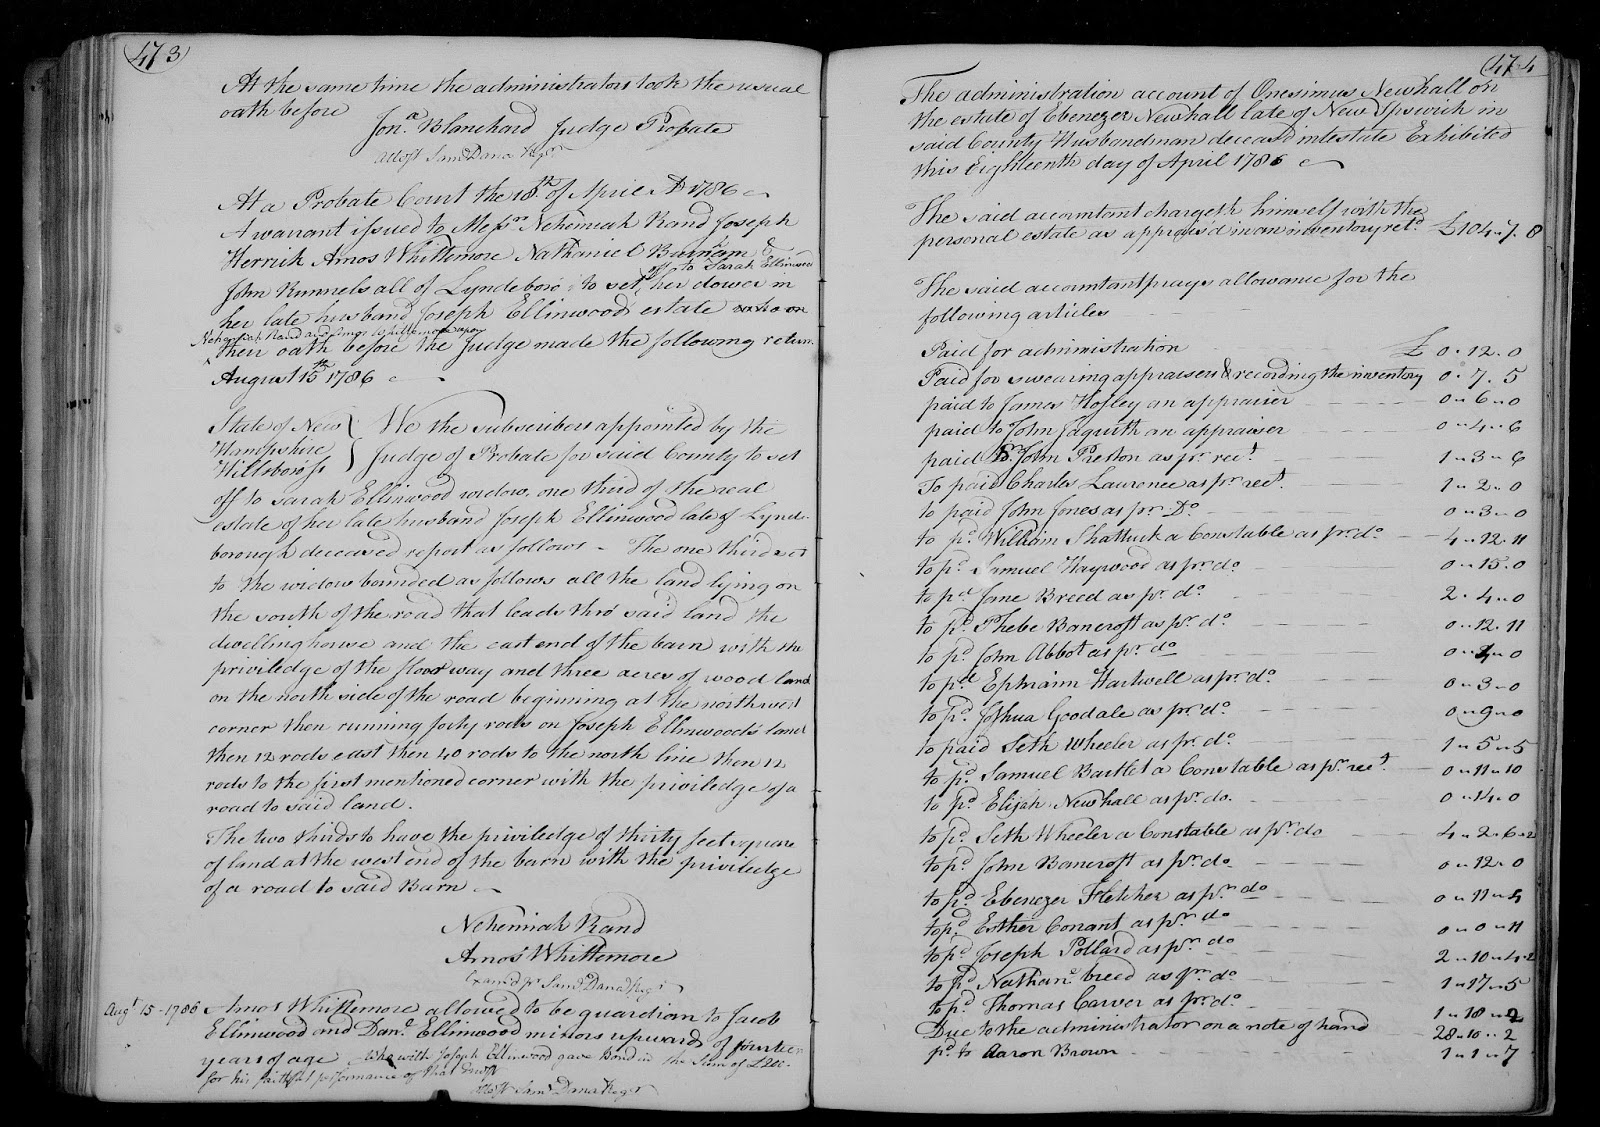 473
At the same time the administrators took the usual
oath before
Jonª Blanchard Judge Probate
Attest Samˡ Dana Regʳ
At a Probate Court the 18th of April AD 1786
A warrant issued to Messʳˢ Nehemiah Rand Joseph
Herrick Amos Whittemore Nathaniel Burnam &
off to Sarah Ellinwood
John Runnels all of Lyndeboro to set her dower in
her late husband Joseph Ellinwoods estate who on
Nehemiah Rand and Amos Whittemore upon
their oath before the Judge made the following return
August 15th 1786
State of New
Hampshire
Hillsboro ss
We the subscribers appointed by the
Judge of Probate for said County to set
off to Sarah Ellinwood widow, one third of the real
estate of her late husband Joseph Ellinwood late of Lynde-
borough deceased report as follows - The one third set
to the widow bounded as follows all the land lying on
the south of the road that leads thro said land the
dwelling house and the east end of the barn with the
priviledge of the floor way and three acres of wood land
on the north side of the road beginning at the northwest
corner then running forty rods on Joseph Ellinwood's land
then 12 rods east then 40 rods to the north line then 12
rods to the first mentioned corner with the priviledge of a
road to said land.
The two thirds to have the priviledge of thirty feet square
of land at the west end of the barn with the priviledge
of a road to said Barn
Nehemiah Rand
Amos Whittemore
Examᵈ pʳ Samˡ Dana Regʳ
Augᵗ 15-1786 Amos Whittemore allowed to be guardian to Jacob
Ellinwood and Danˡ Ellinwood minors upwards of fourteen
years of age Who with Joseph Ellinwood gave Bond in the Sum of £200.
for his faithful performance of that trust
Attest Samˡ Dana Regʳ
474
The administration account of Onesimus Newhall on
the estate of Ebenezer Newhall late of New Ipswich in
said County Husbandman deceasd intestate Exhibited
this Eighteenth day of April 1786
The said accountant chargeth himself with the
personal estate as appraisd in an inventory retᵈ £104.7.8
The said accountant prays allowance for the
following articles
Paid for administration £ 0.12.0
Paid for swearing appraisers & recording the inventory 0.7.5
paid to James Hosley an appraiser 0.6.0
paid to John Jaquith an appraiser 0.4.6
paid Dʳ. John Preston as pʳ recᵗ 1.3.6
To paid Charles Lawrence as pʳ recᵗ. 1.2.0
to paid John Jones as pʳ Dº 0.3.0
to pᵈ William Shattuck a Constable as pʳ dº 4.12.11
to pᵈ Samuel Haywood as pʳ dº 0.15.0
to pᵈ Jane Breed as pʳ dº 2.4.0
to pᵈ Phebe Bancroft as pʳ dº 0.12.11
to pᵈ John Abbot as pʳ do
to pᵈ Ephraim Hartwell as pʳ dº 0.3.0
to pᵈ Joshua Goodale as pʳ dº 0.9.0
to paid Seth Wheeler as pʳ dº 1.5.5
to pᵈ Samuel Bartlet a Constable as pʳ recᵗ 0.11.10
to pᵈ Elijah Newhall as pʳ do. 0.14.0
to pᵈ Seth Wheeler a Constable as pʳ do 4.2.6.2
to pᵈ John Bancroft as pʳ do 0.12.0
to pᵈ Ebenezer Fletcher as pʳ do 0.11.4
to pᵈ Esther Conant as pʳ do 0.0.11
to pᵈ Joseph Pollard as pʳ do 2.10.4.2
to pᵈ Nathanˡ breed as pʳ do 1.17.5
to pᵈ Thomas Carver as pʳ do 1.18.2
Due to the administrator on a note of hand 28.10.2
pᵈ to Aaron Brown 1.1.7